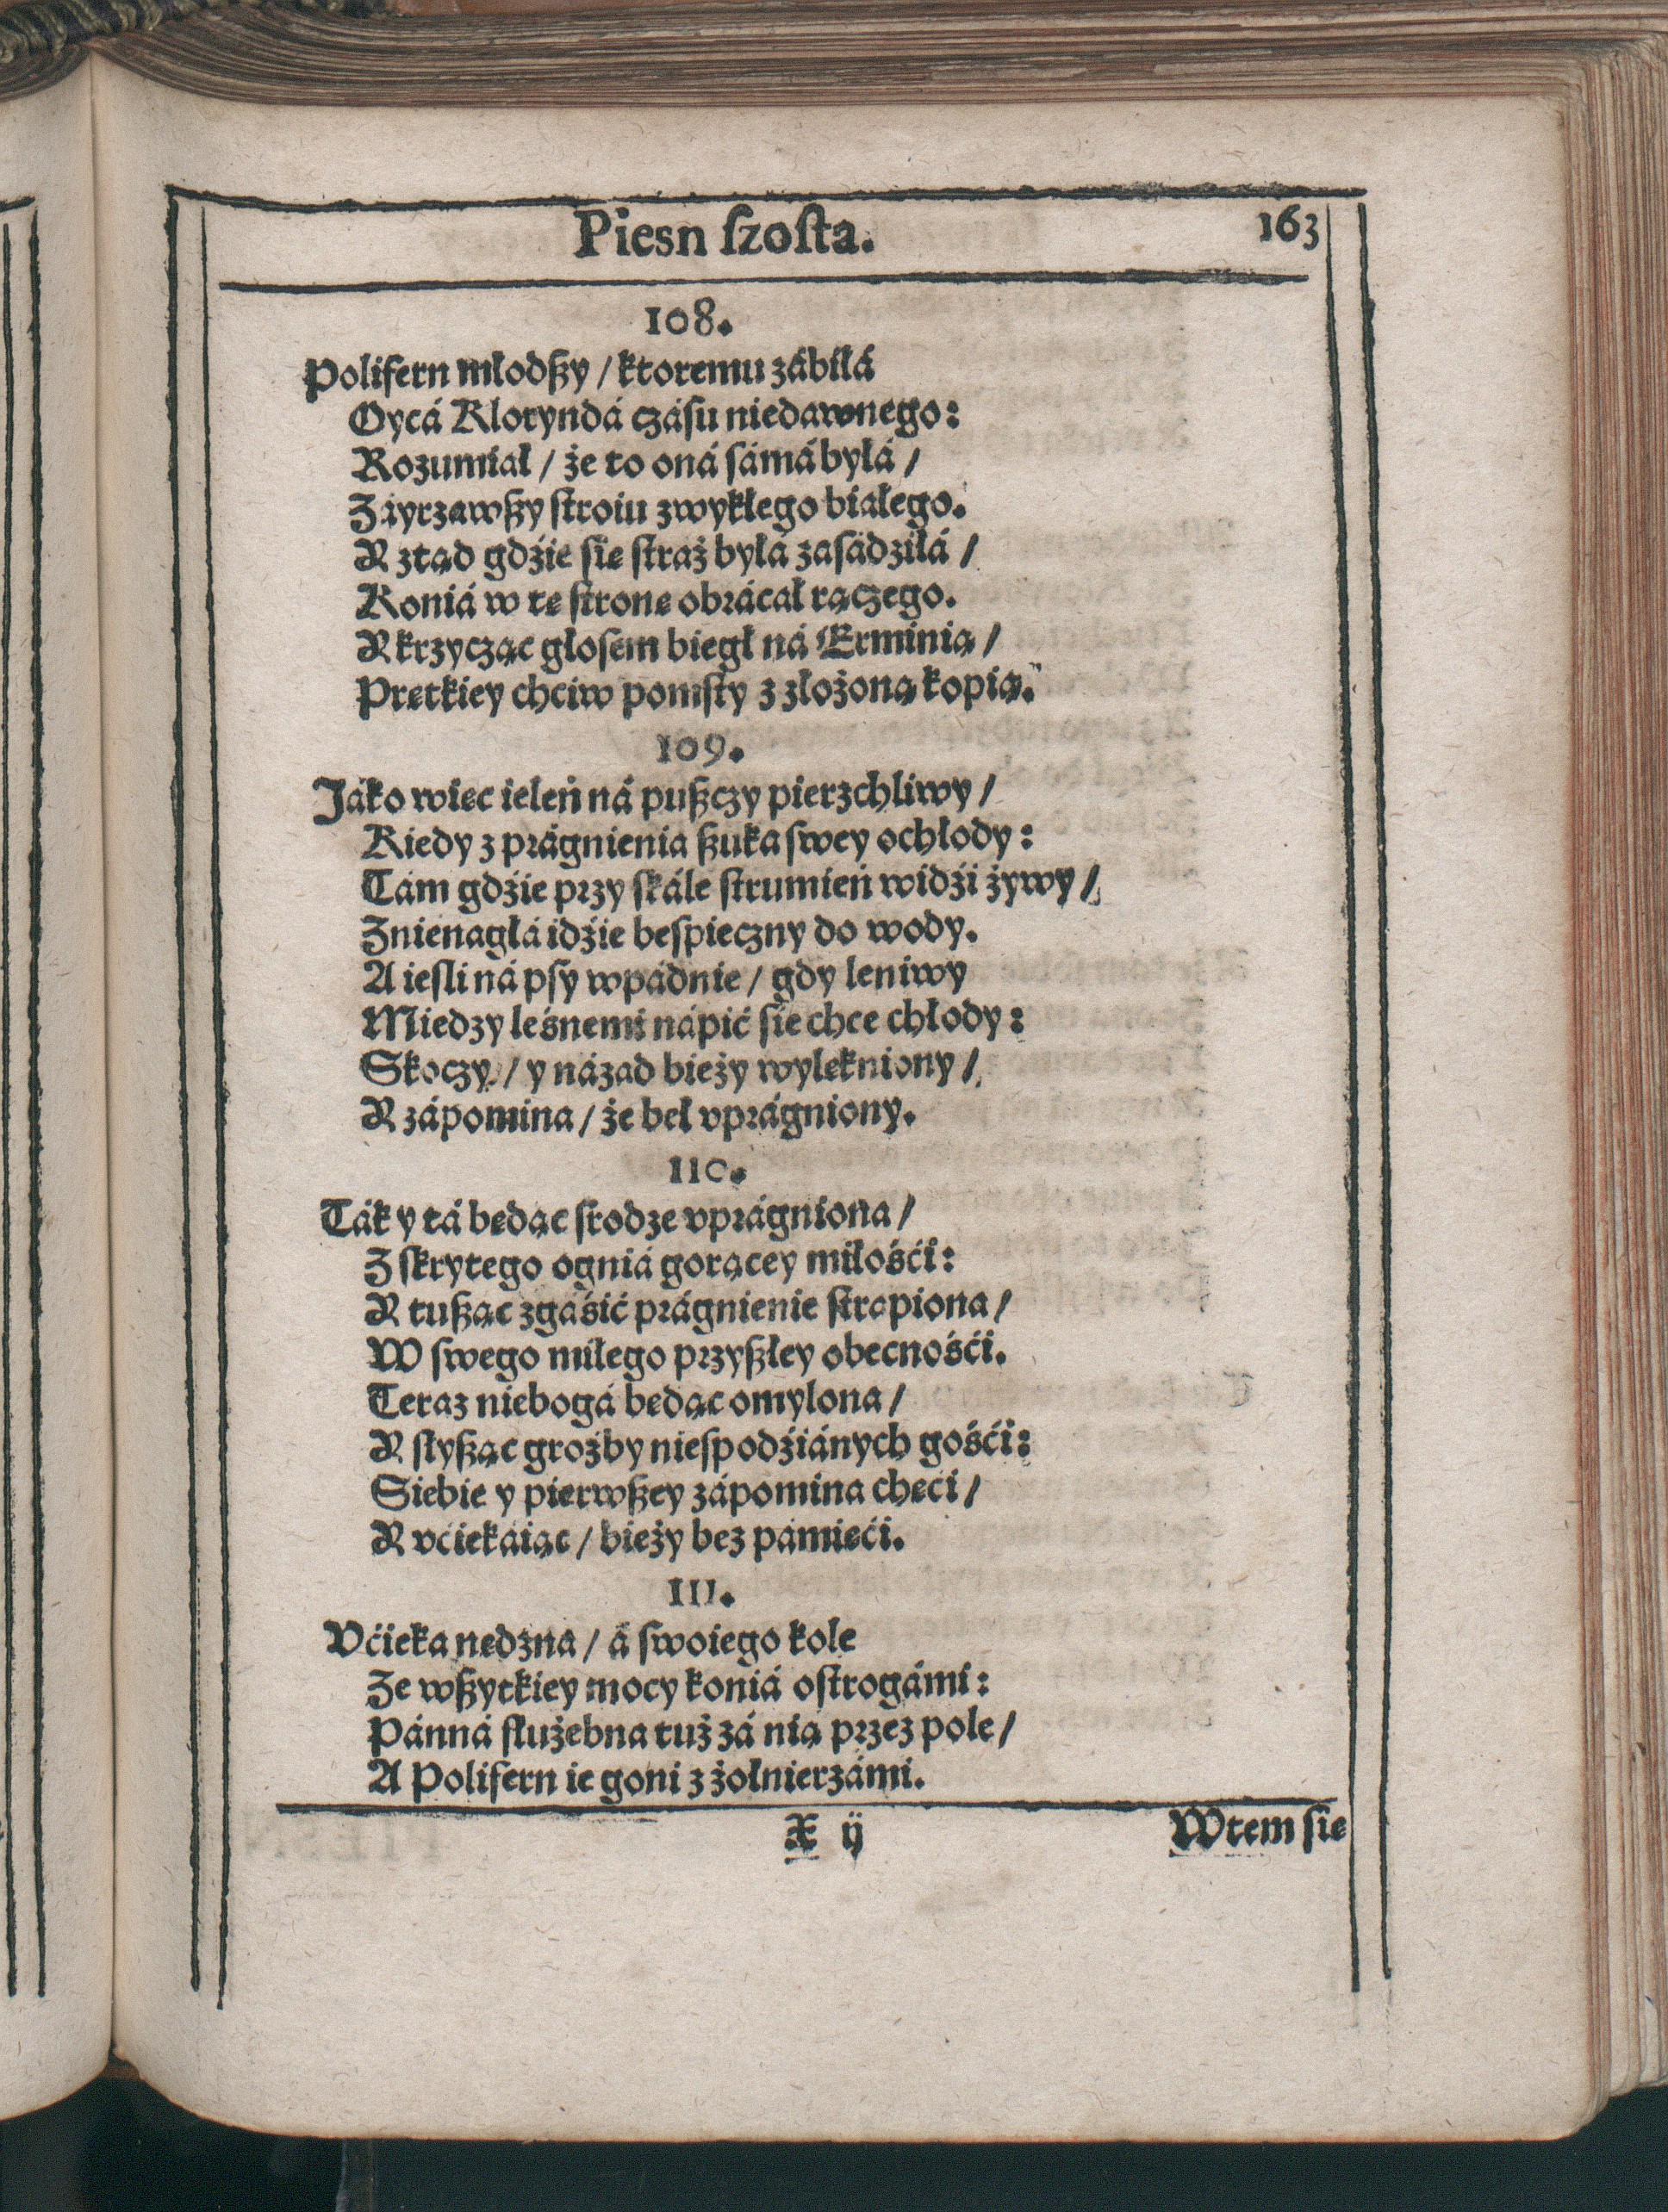 Piesn ſzoſta.
163
108.
Polifern młodſzy / ktoremu zábiłá
Oycá Kloryndá czásu niedawnego:
Rozumiał / że to oná ſámá byłá /
Záyrzawſzy ſtroiu zwykłego białego.
Y ztąd gdźie ſie ſtraż byłá zaſádziłá /
Koniá w tę ſtronę obrácał rączego.
Y krzycząc głoſem biegł ná Erminią /
Prętkiey chciw pomſty z złożoną kopią.
109.
Jáko więc ieleń ná puſzczy pierzchliwy /
Kiedy z prágnienia ſzuka ſwey ochłody:
Tám gdźie przy ſkále ſtrumień widźi żywy /
Znienagłá idźie beſpieczny do wody.
A ieſli ná pſy wpádnie / gdy leniwy
Miedzy leśnemi nápić ſie chce chłody:
Skoczy / y názad bieży wylękniony /
Y zápomina / że beł vprágniony.
110.
Ták y tá będąc ſrodze vprágniona /
Z ſkrytego ogniá gorącey miłośći:
Y tuſząc zgáśić prágnienie ſtrapiona /
W ſwego miłego przyſzłey obecnośći.
Teraz niebogá będąc omylona /
Y ſłyſząc groźby nieſpodźiánych gośći:
Siebie y pierwſzey zápomina chęći /
Y vćiekáiąc / bieży bez pámięći.
111.
Vćieka nędzna / á ſwoiego kole
Ze wſzytkiey mocy koniá oſtrogámi:
Pánná ſłużebna tuż zá nią przez pole /
A Polifern ie goni z żołnierzámi.
X ij
Wtem ſie